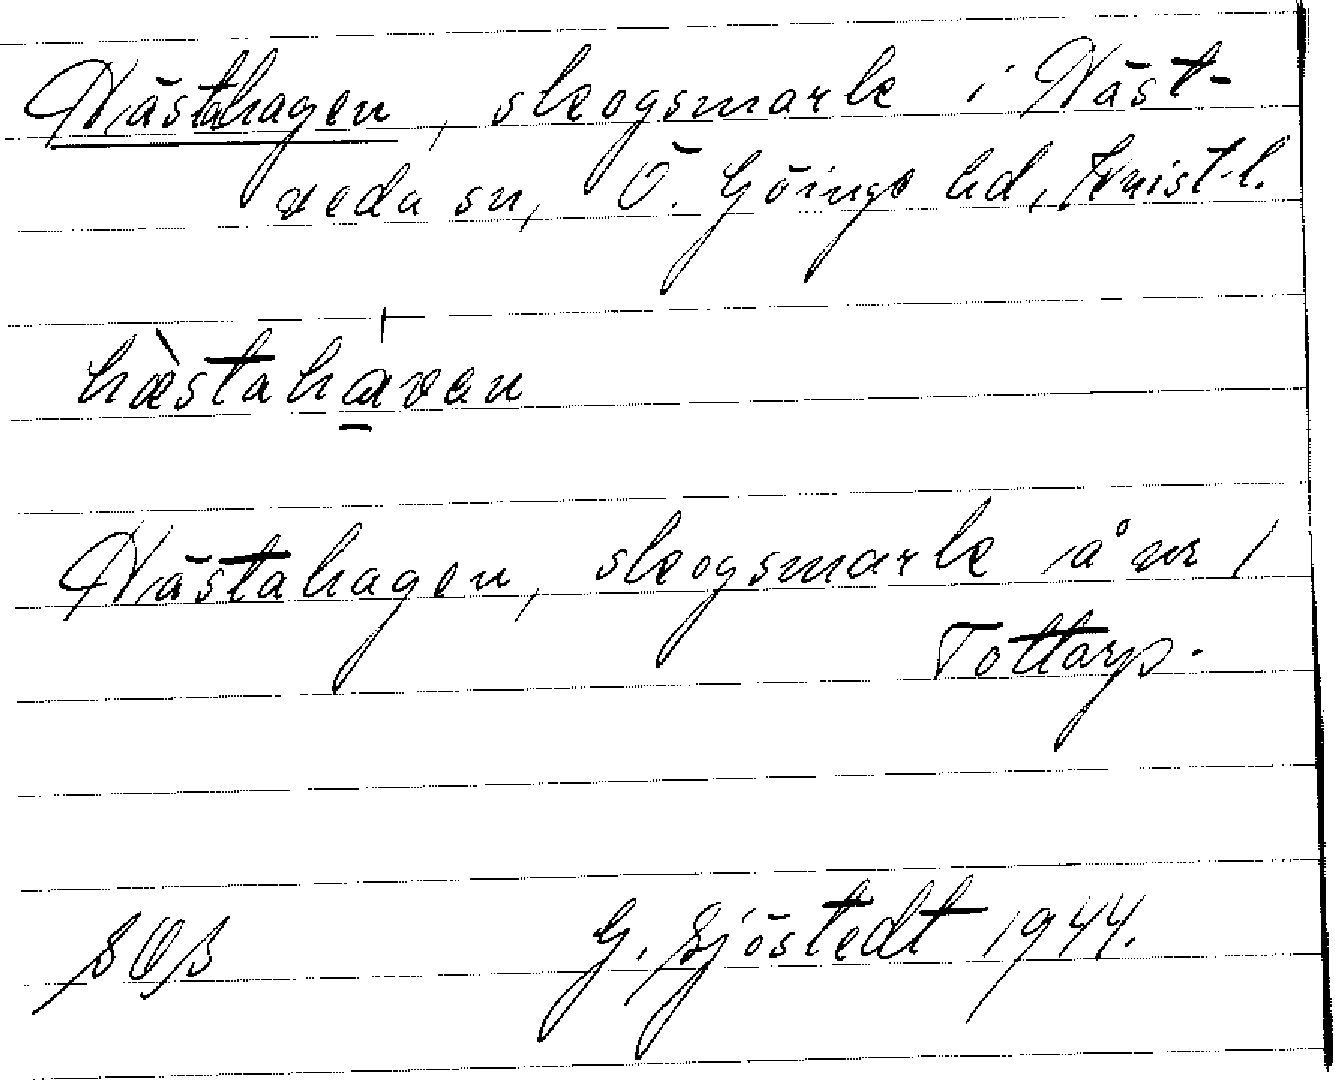 Hästahagen, skogsmark i Häst-
veda sn, Ö. Göinge hd, Krist.l.
hæ̀stahavan
Hästahagen, skogsmark å nr 1
Tottarp.
SOS G. Sjöstedt 1944.